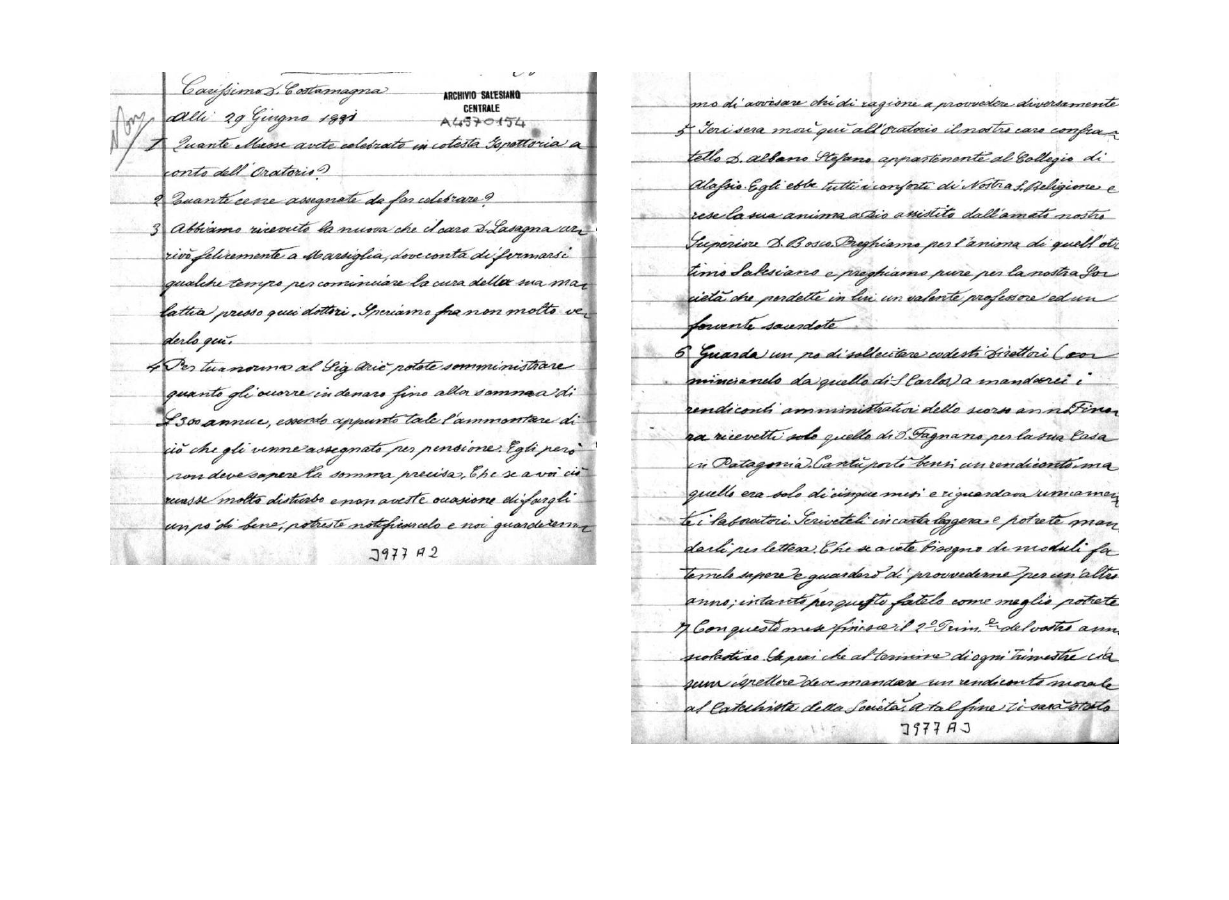 Carissimo D. Costamagna
ARCHIVIO SALESIANO
CENTRALE
A4570154
Alli 29 Giugno 1881
1 Quante Messe avete celebrato in cotesta Ispettoria a
conto dell'Oratorio?
2 Quante cene assegnate da far celebrare?
3 Abbiamo ricevuto la nuova che il caro D. Lasagna ar-
rivò felicemente a Marsiglia, dove conta di fermarsi
qualche tempo per cominciare la cura della sua ma-
lattia presso quei dottori. Speriamo fra non molto ve-
derlo qui.
4 Per tua norma al Sig potete somministrare
quanto gli occorre in denaro fino alla somma di
L 300 annue, essendo appunto tale l'ammontare di
ciò che gli venne assegnato per pensione. Egli però
non deve sapere la somma precisa. Che se a voi ciò
recasse molto disturbo e non aveste occasione di fargli
un po' di bene, potreste notificarcelo e noi guarderem-
J977 A2
mo di avvisare chi di ragione a provvedere diversamente
5 Ieri sera morì quì all'Oratorio il nostro caro confra-
tello D. Albano Stefano appartenente al Collegio di
Alassio. Egli ebbe tutti i conforti di Nostra S. Religione e
rese la sua anima a Dio assistito dall'amato nostro
Superiore D. Bosco. Preghiamo per l'anima di quell'ot
timo Salesiano e preghiamo pure per la nostra So
cietà che perdette in lui un valente professore ed un
fervente sacerdote
6 Guarda un po di sollecitare codesti Direttori (co
minciando da quello di S. Carlo) a mandarci i
rendiconti amministrativi dello scorso anno. Fino
ra ricevetti solo quello di D. Fagnano per la sua Casa
in Patagonia. Cantù portò bensì un rendiconto ma
quello era solo di cinque mesi e riguardava unicamen
te i laboratori. Scriveteli in carta leggera e potrete man
darli per lettera. Che se avete bisogno di moduli fa
temelo sapere e guarderò di provvederne per un altro
anno; intanto per questo fatelo come meglio potrete
7 Con questo mese finisce il 2º Trim.e del vostro anno
scolastico. Saprai che al termine di ogni trimestre cia
scun ispettore deve mandare un rendiconto morale
al Catechista della Società. A tal fine ti sarà stato
J977 A3